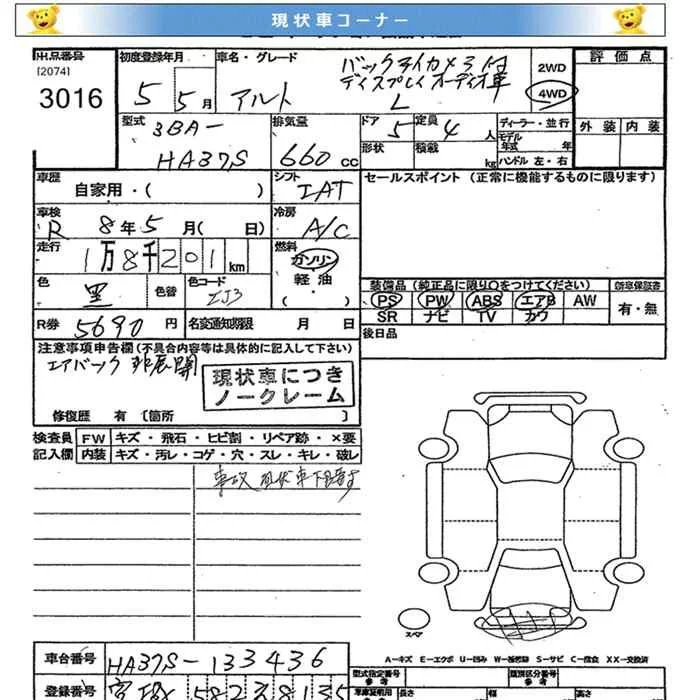 現状車コーナー
出品番号
[2074]
3016
初度登録年月
5 5月
車名・グレード
アルト
バックアイカメラ付
ディスプレイオーディオ車
L
2WD
4WD
評価点
外装 内装
型式
3BA-
HA37S
排気量
660cc
ドア 5
形状
定員 4人
積載 kg
ディーラー・並行
モデル年式 年
ハンドル 左・右
車歴
自家用・( )
シフト
IAT
セールスポイント (正常に機能するものに限ります)
車検
R 8年5月( 日)
冷房
A/C
走行
1万8千201km
燃料
ガソリン
軽油
( )
色
黒
色替
色コード
ZJ3
装備品(純正品に限り○をつけてください)
PS PW ABS エアB AW
SR ナビ TV カワ
新車保証書
有・無
R券 5690円
名変通知期限 月 日
後日品
注意事項申告欄(不具合内容等は具体的に記入して下さい)
エアバック 未展開
現状車につき
ノークレーム
修復歴 有〔箇所 〕
検査員
記入欄
FW キズ・飛石・ヒビ割・リペア跡・×要
内装 キズ・汚レ・コゲ・穴・スレ・キレ・破レ
事故 現状車
スペア
A－キズ E－エクボ U－凹み W－補修跡 S－サビ C－腐食 XX－交換済
車台番号
HA37S-133436
型式指定番号
参考
類別区分番号
参考
登録番号
車庫証明用
参考
長さ
幅
高さ